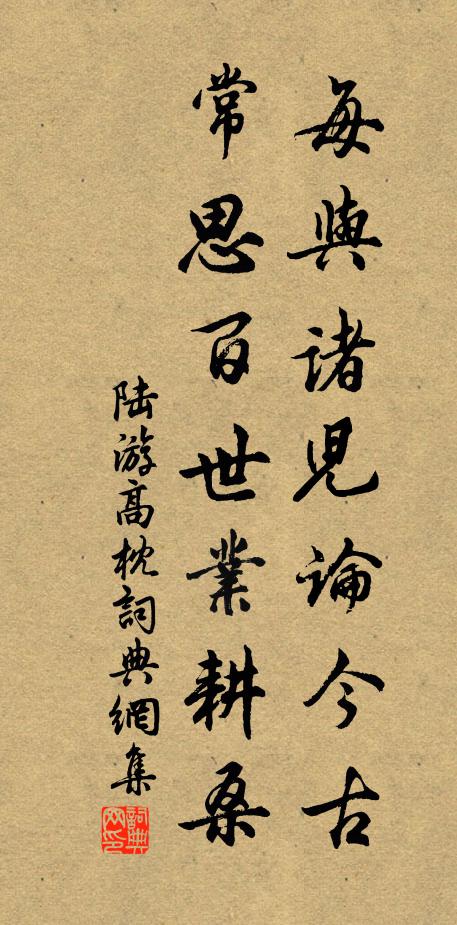 每與諸児論今古
常思百世業耕桑
陸游高枕詞典網集
詞典網印